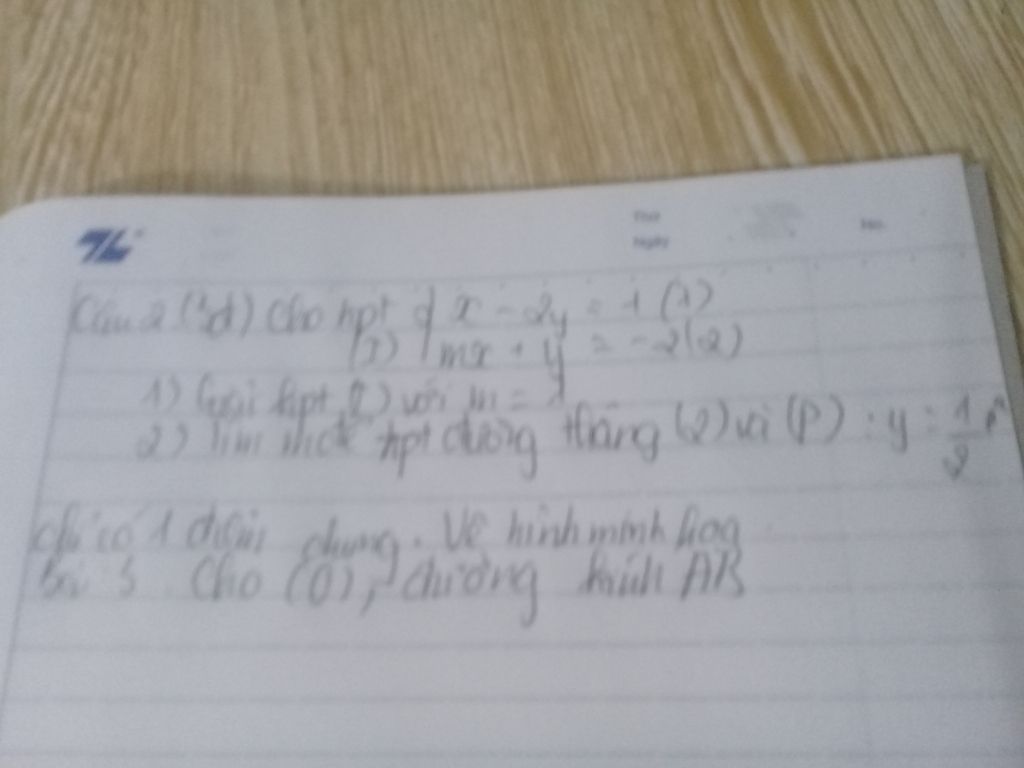 TL
Thứ
Ngày
No.
Câu 2 (3đ) Cho hpt { x - 2y = 1 (1)
(I) mx + y = -2 (2)
1) Giải hpt (I) với m = 1
2) Tìm m để hpt đường thẳng (2) và (P) : y = 1/2
chỉ có 1 điểm chung. Vẽ hình minh hoạ
Bài 3 Cho (O), đường kính AB